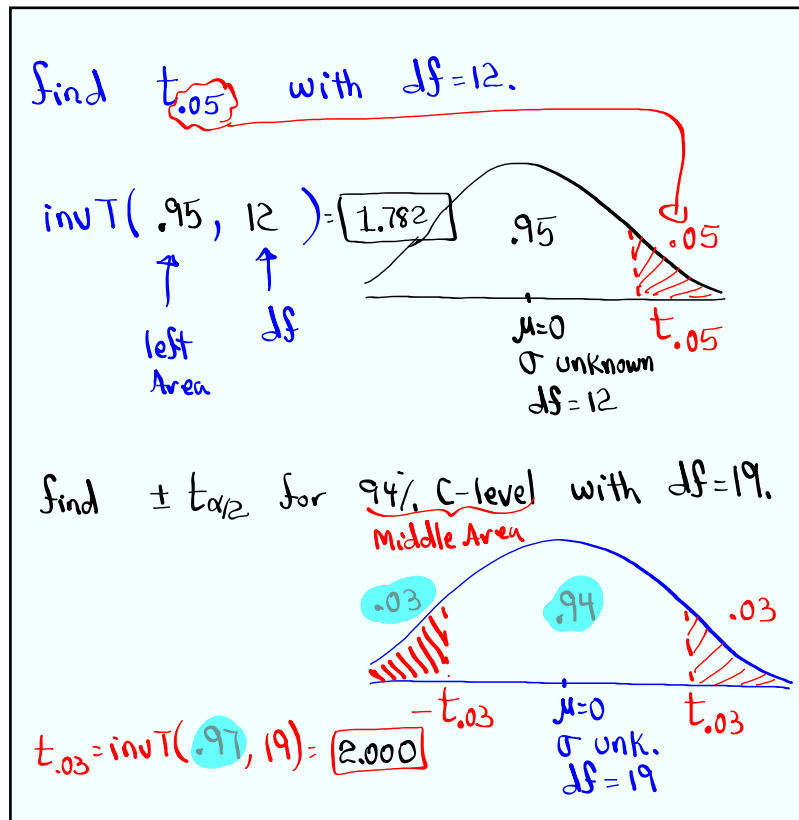 find t.05 with df=12.
invT( .95, 12 )= 1.782
.95
.05
left Area
df
μ=0
σ unknown
df=12
t.05
find ± tα/2 for 94% C-level with df=19.
Middle Area
.03
.94
.03
-t.03
μ=0
σ unk.
df=19
t.03
t.03=invT(.97, 19)= 2.000